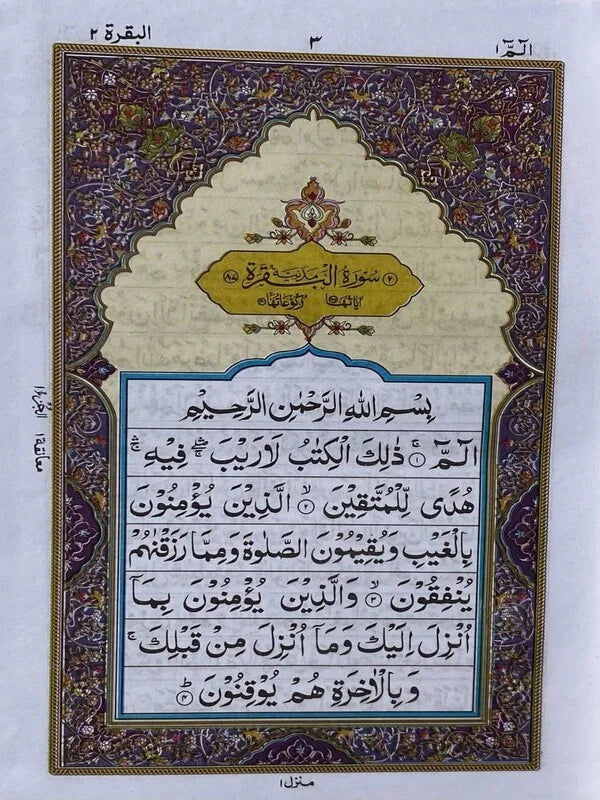 الٓمّٓ ١
٣
البقرة ٢
٢ سُوْرَةُ الْبَقَرَةِ مَدَنِيَّةٌ ٨٧
اٰيَاتُهَا رُكُوْعَاتُهَا
بِسْمِ اللّٰهِ الرَّحْمٰنِ الرَّحِيْمِ
الٓمّٓ ۚ ١ ذٰلِكَ الْكِتٰبُ لَا رَيْبَ ۛۚ فِيْهِ ۛۚ
هُدًى لِّلْمُتَّقِيْنَ ۙ ٢ الَّذِيْنَ يُؤْمِنُوْنَ
بِالْغَيْبِ وَيُقِيْمُوْنَ الصَّلٰوةَ وَمِمَّا رَزَقْنٰهُمْ
يُنْفِقُوْنَ ۙ ٣ وَالَّذِيْنَ يُؤْمِنُوْنَ بِمَآ
اُنْزِلَ اِلَيْكَ وَمَآ اُنْزِلَ مِنْ قَبْلِكَ ۚ
وَبِالْاٰخِرَةِ هُمْ يُوْقِنُوْنَ ؕ ٤
معانقة ١
منزل ١